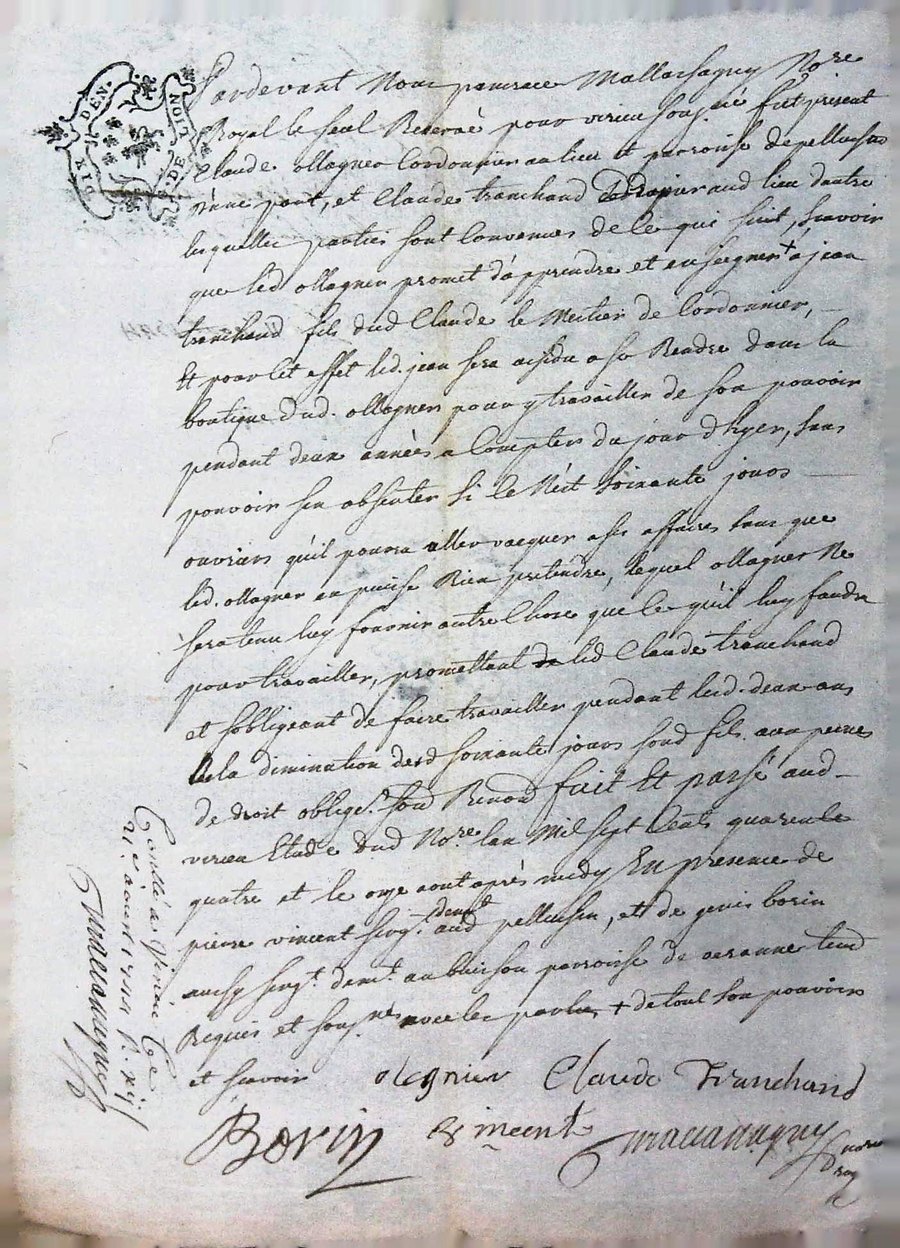 DEN.
DIX
DE LION
Pardevant Nous pancrace Mallassagny No.re
Royal le seul Reservé pour virieu sousg.né fut present
Claude ollagner Cordonnier au lieu et parroisse de pellussin
d'une part, et Claude tranchand drapier aud lieu dautre
lesquelles parties sont Convenues de Ce qui suit, scavoir
que led ollagner promet d'apprendre et enseigner + a jean
tranchand fils dud Claude le Mettier de Cordonnier,
Et pour Cet effet led. jean sera assidu a se Rendre dans la
boutique dud. ollagner pour y travailler de son pouvoir
pendant deux années a Compter du jour d'hyer, sans
pouvoir sen absenter si Ce N'est soixante jours
ouvriers qu'il pourra aller vacquer a ses affaires sans que
led. ollagner en puisse Rien pretendre, lequel ollagner Ne
sera tenu luy fournir autre Chose que Ce qu'il luy faudra
pour travailler, promettant led Claude tranchand
et s'obligeant de faire travailler pendant lesd. deux ans
a la diminution desd soixante jours sond fils aux peines
de droit oblige.t sou Renon fait Et passé aud
virieu Etude dud No.re lan Mil sept Cents quarente
quatre et le onze aout après midy En presence de
pierre vincent sieg.r dem.t aud pellussin, et de genis borin
aussy sieg.r dem.t au buisson parroisse de veranne temd
Requis et sousg.nes avec les parties + de tout son pouvoir
et scavoir olagnier Claude Tranchand
Borin vincent Mallassagny
no.re
roy
Controllé a virieu le
21e aout 1744 R. xij s
Mallassagny